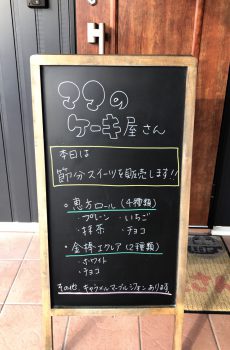 ママの
ケーキ屋さん
本日は
節分スイーツを販売します!!
・恵方ロール(4種類)
・プレーン ・いちご
・抹茶 ・チョコ
・金棒エクレア(2種類)
・ホワイト
・チョコ
その他、キャラメルマーブルシフォンあります